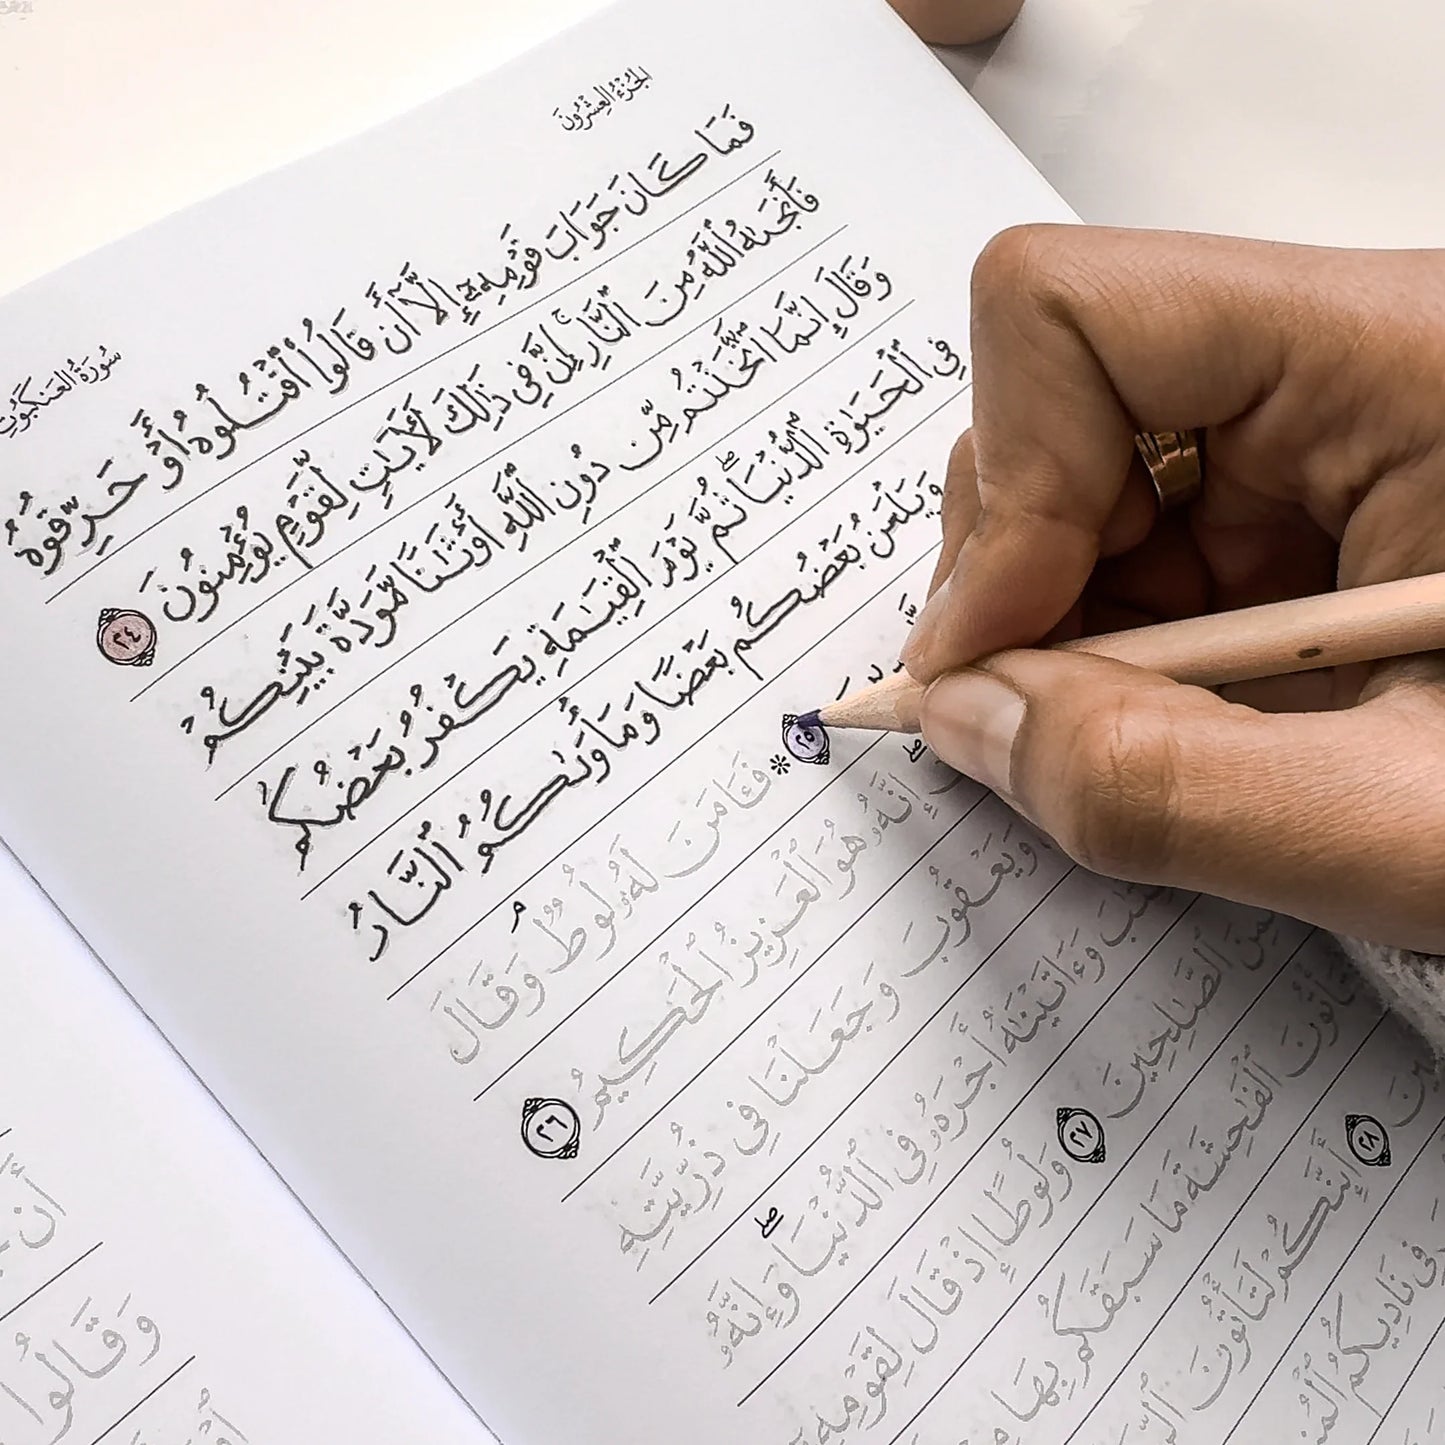 الجُزْءُ العِشْرُونَ
سُورَةُ العَنكَبُوتِ
فَمَا كَانَ جَوَابَ قَوْمِهِۦٓ إِلَّآ أَن قَالُوا۟ ٱقْتُلُوهُ أَوْ حَرِّقُوهُ
فَأَنجَىٰهُ ٱللَّهُ مِنَ ٱلنَّارِ ۚ إِنَّ فِى ذَٰلِكَ لَـَٔايَـٰتٍ لِّقَوْمٍ يُؤْمِنُونَ ٢٤
وَقَالَ إِنَّمَا ٱتَّخَذْتُم مِّن دُونِ ٱللَّهِ أَوْثَـٰنًا مَّوَدَّةَ بَيْنِكُمْ
فِى ٱلْحَيَوٰةِ ٱلدُّنْيَا ۖ ثُمَّ يَوْمَ ٱلْقِيَـٰمَةِ يَكْفُرُ بَعْضُكُم
وَيَلْعَنُ بَعْضُكُم بَعْضًا وَمَأْوَىٰكُمُ ٱلنَّارُ
٢٥ * فَـَٔامَنَ لَهُۥ لُوطٌ ۘ وَقَالَ
إِنَّهُۥ هُوَ ٱلْعَزِيزُ ٱلْحَكِيمُ ٢٦
وَيَعْقُوبَ وَجَعَلْنَا فِى ذُرِّيَّتِهِ
وَءَاتَيْنَـٰهُ أَجْرَهُۥ فِى ٱلدُّنْيَا ۖ وَإِنَّهُۥ
ٱلصَّـٰلِحِينَ ٢٧ وَلُوطًا إِذْ قَالَ لِقَوْمِهِۦٓ
ٱلْفَـٰحِشَةَ مَا سَبَقَكُم بِهَا
٢٨ أَئِنَّكُمْ لَتَأْتُونَ
فِى نَادِيكُمُ
أَن
وَقَالُوا۟